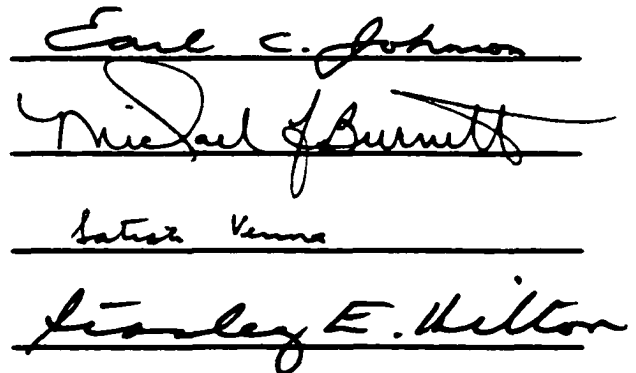 Earl C. Johnson
Michael J Burnett
Satish Verma
E. Hilton